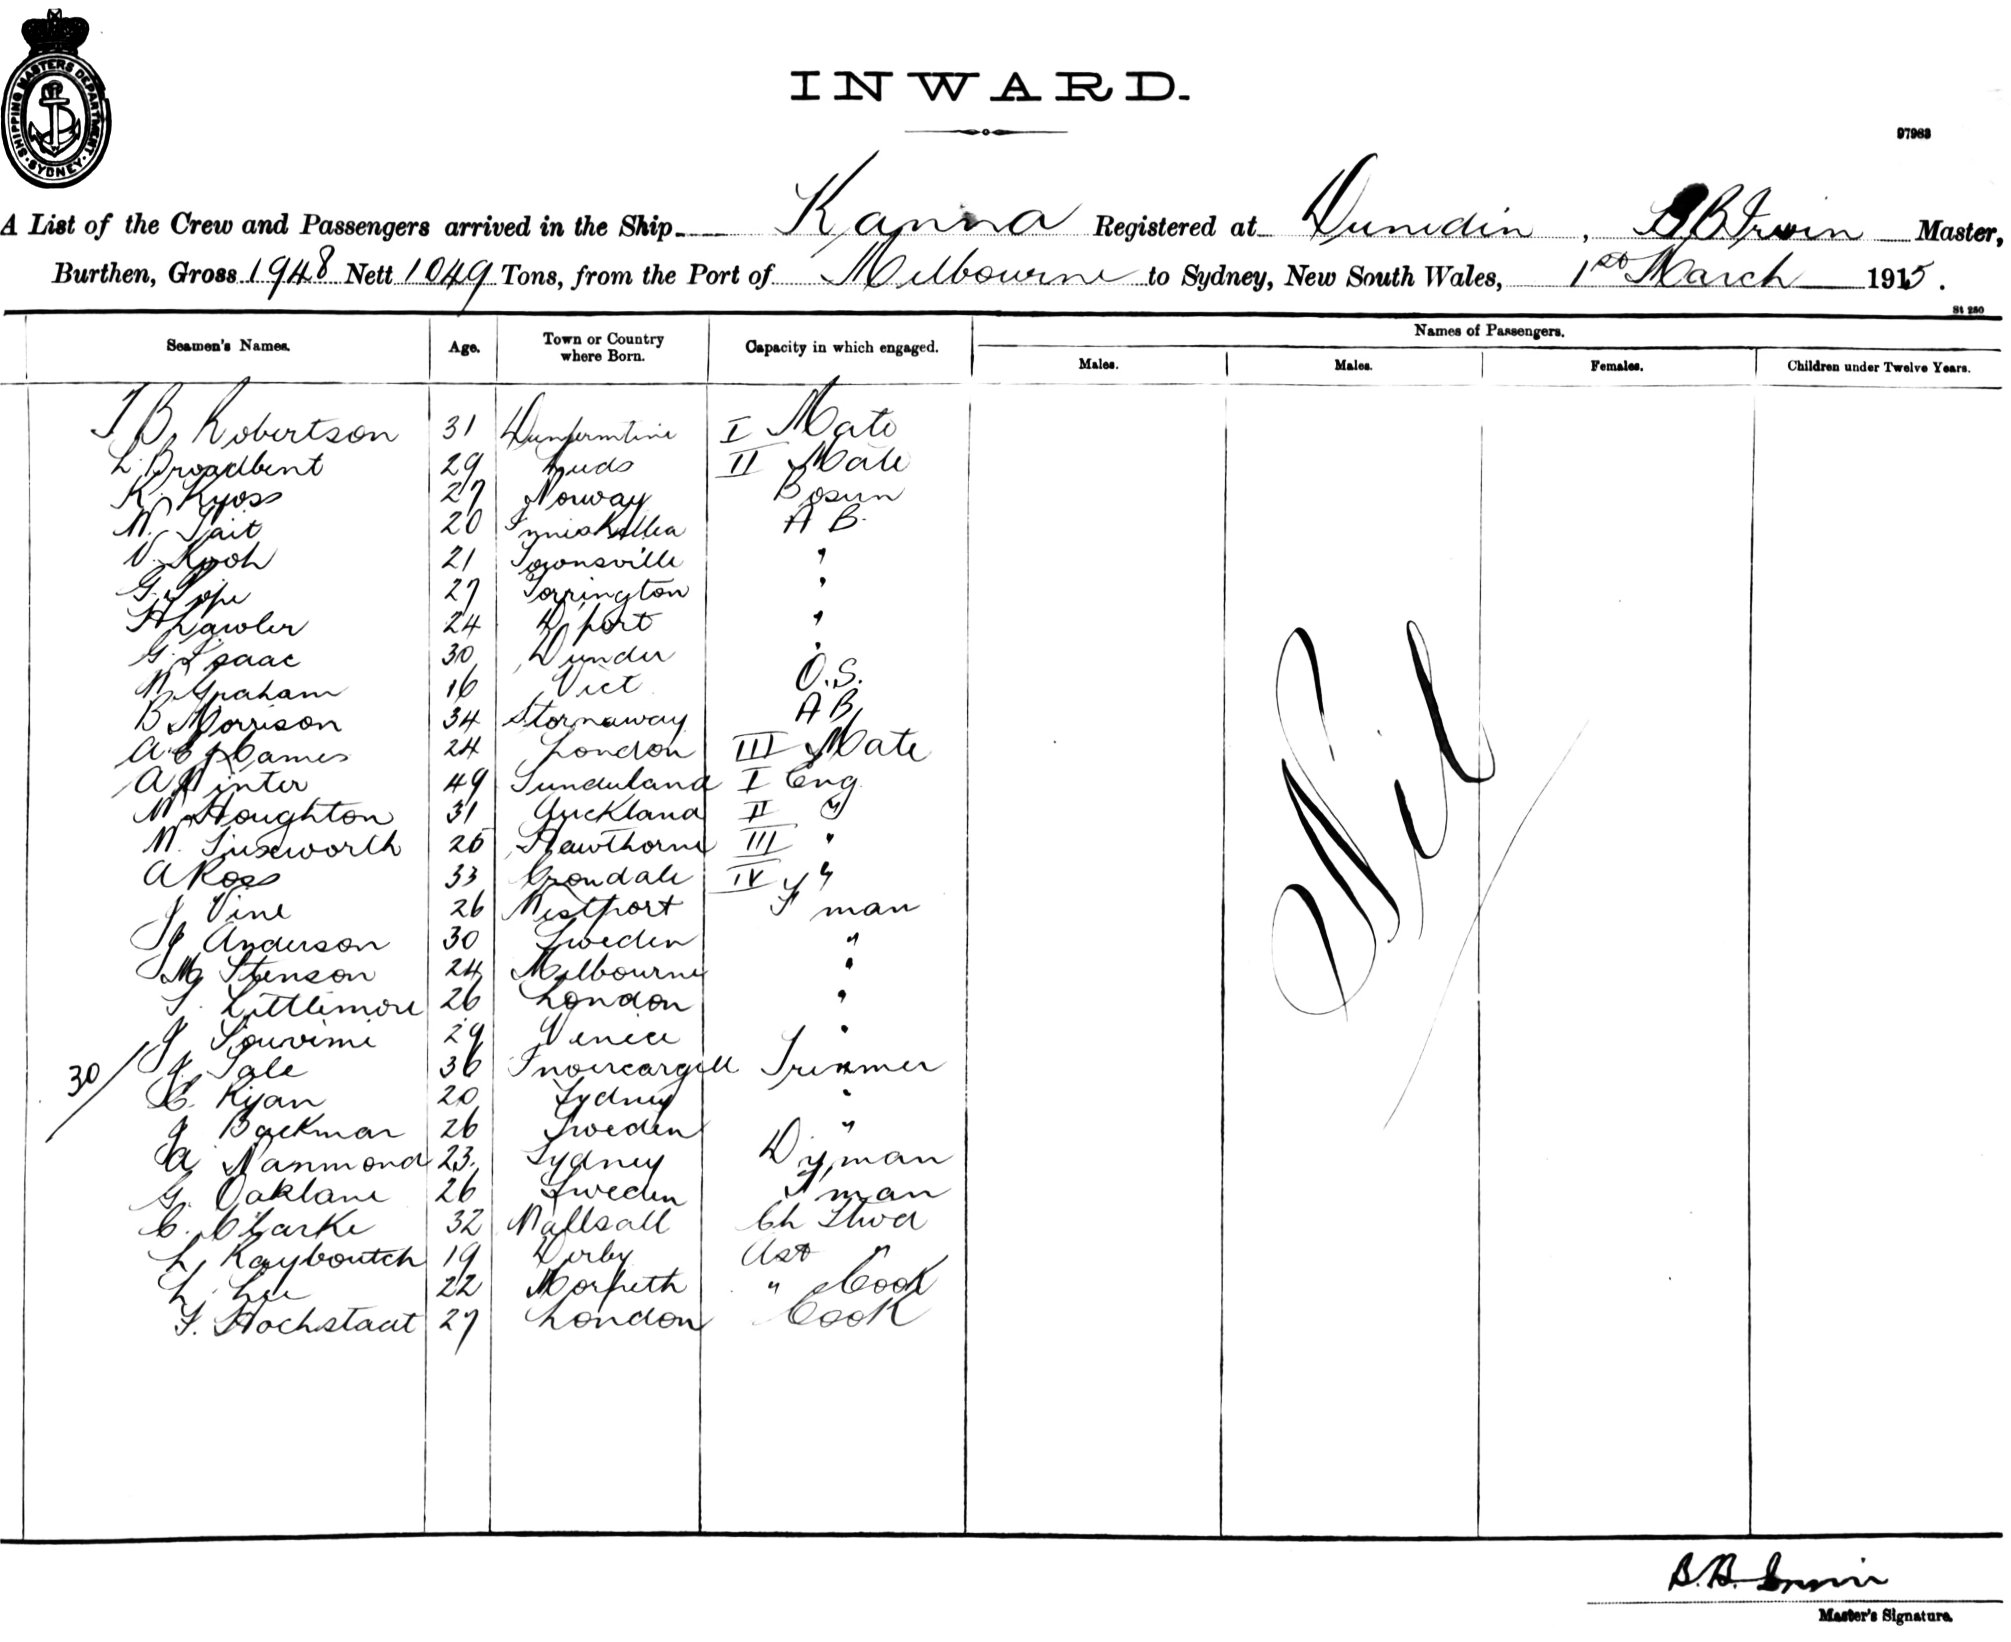 SHIPPING MASTERS DEPARTMENT. SYDNEY
INWARD.
97983
A List of the Crew and Passengers arrived in the Ship Kanna Registered at Dunedin, B B Irwin Master,
Burthen, Gross 1948 Nett 1049 Tons, from the Port of Melbourne to Sydney, New South Wales, 1st March 1915.
St 250
Seamen's Names. Age. Town or Country where Born. Capacity in which engaged. Names of Passengers.
Males. Males. Females. Children under Twelve Years.
J B Robertson 31 Dunfermline I Mate
L Broadbent 29 Leeds II Mate
K. Kyoss 27 Norway Bosun
W. Tait 20 A B.
V. Kooh 21 Townsville "
G. Pope 27 Torrington "
H Lawler 24 D'port "
G. Isaac 30 Dundee "
W Graham 16 Vict O.S.
B Morrison 34 Stornaway A B
A E James 24 London III Mate
A Winter 49 Sunderland I Eng
W Houghton 31 Auckland II "
W. Tuxworth 25 Hawthorne III "
A Ross 33 IV "
J Vine 26 Westport F man
J Anderson 30 Sweden "
M Stenson 24 Melbourne "
T. Littlemore 26 London "
J Souvimi 29 Venice "
30/ J. Tale 36 Invercargill Trimmer
C. Ryan 20 Sydney "
J Backman 26 Sweden "
A Hammond 23. Sydney Dyman
G. Oaklane 26 Sweden F man
C. Clarke 32 Wallsall Ch Stwd
L Rayboutch 19 Derby Ast "
L. Lee 22 Morpeth " Cook
F. Hochstadt 27 London Cook
Nil
B. B. Irwin
Master's Signature.